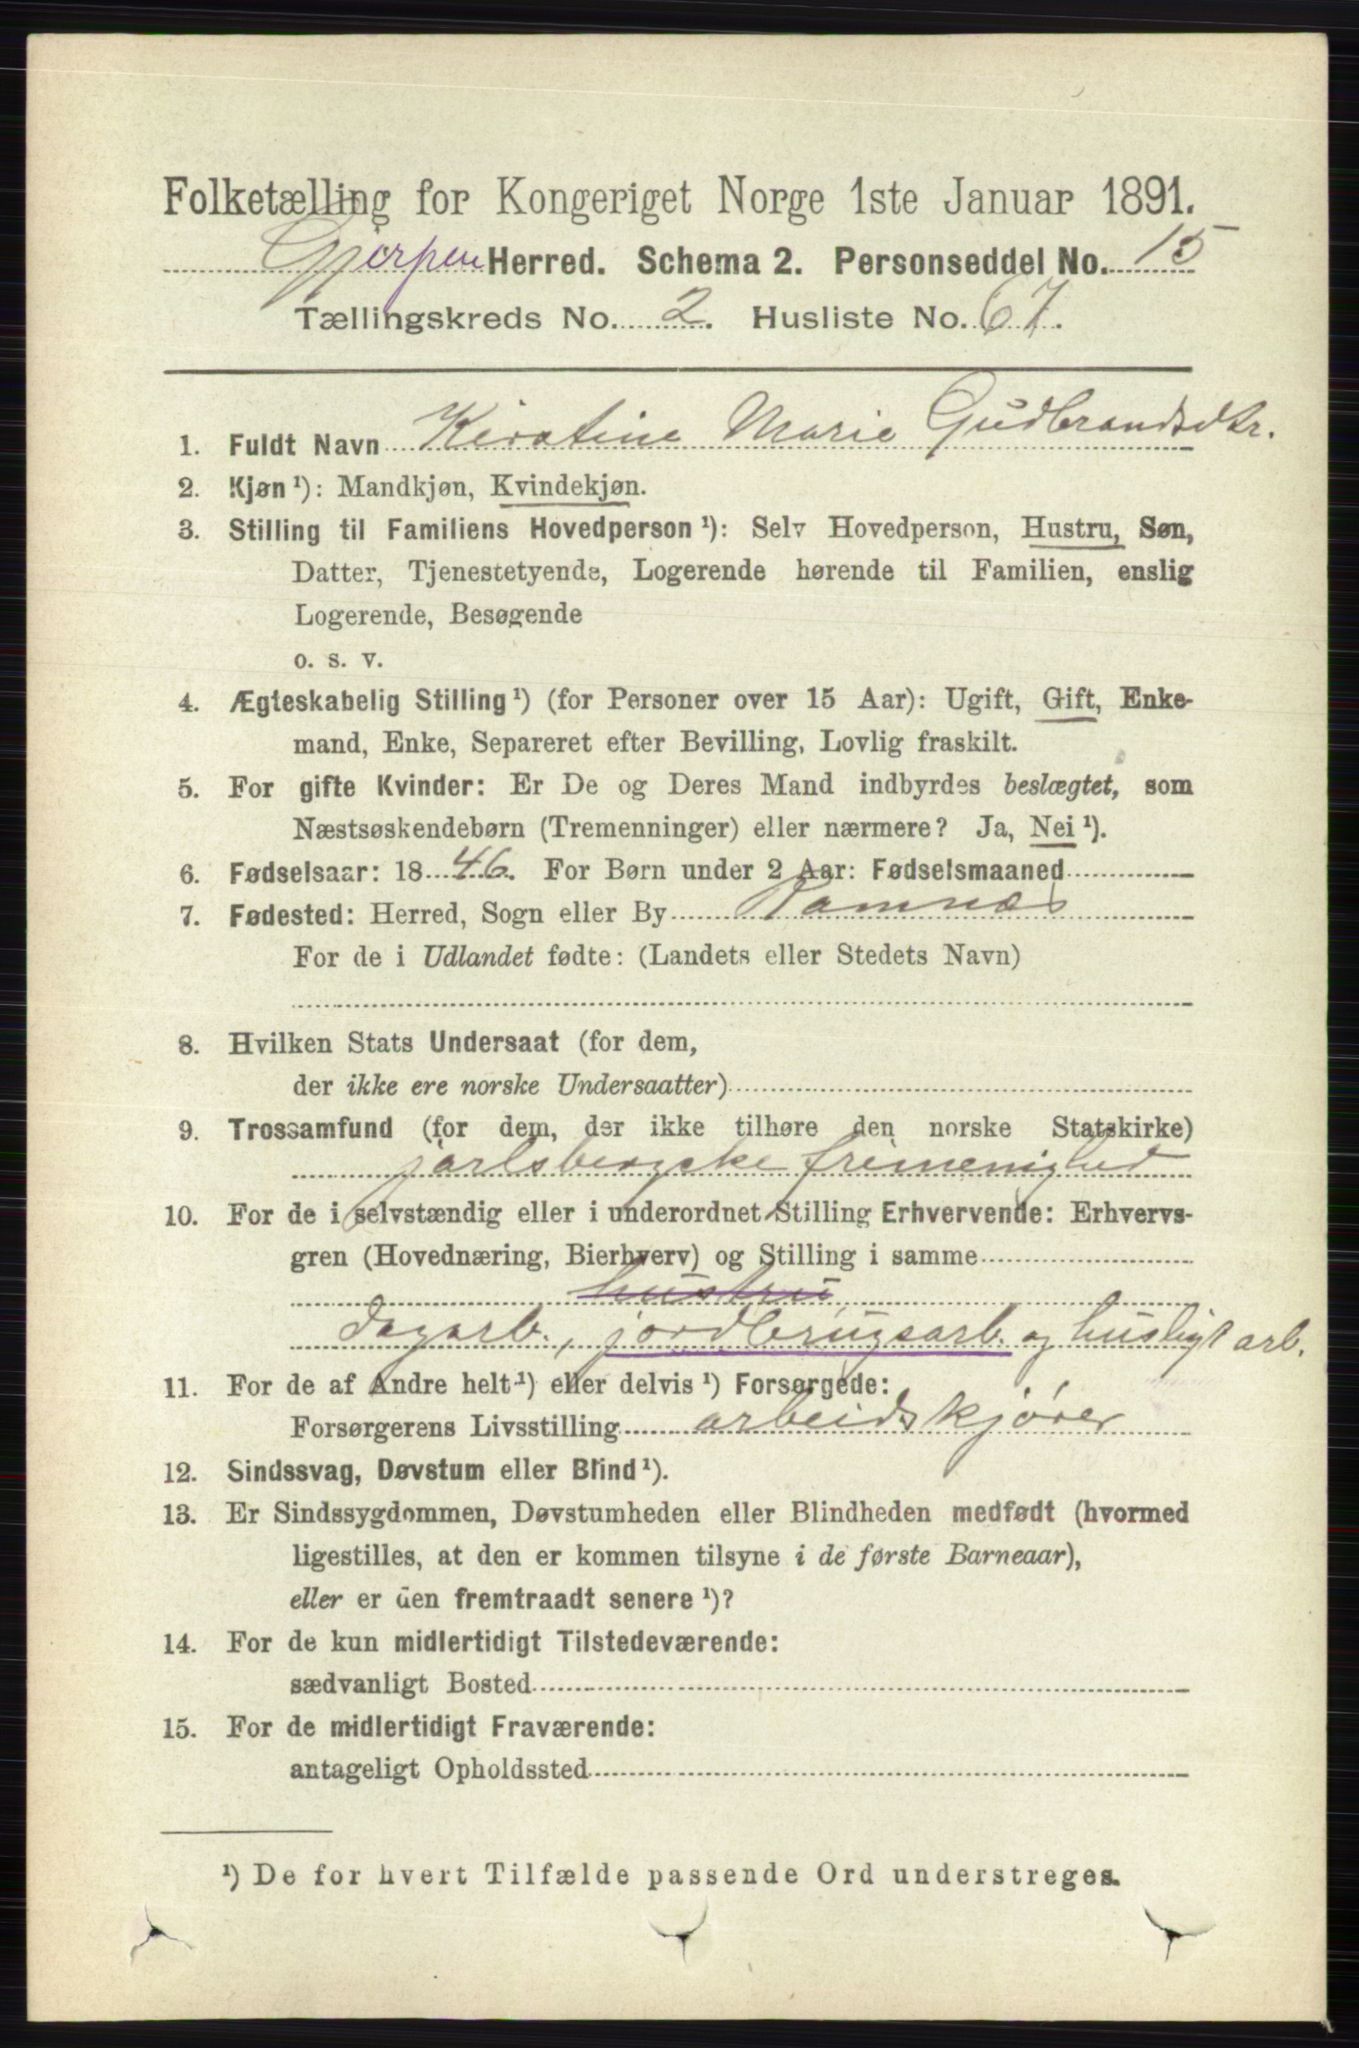 Folketælling for Kongeriget Norge 1ste Januar 1891.
Gjerpen Herred. Schema 2. Personseddel No. 15
Tællingskreds No. 2. Husliste No. 67.
1. Fuldt Navn Kirstine Marie Gudbrandsdtr.
2. Kjøn ¹): Mandkjøn, Kvindekjøn.
3. Stilling til Familiens Hovedperson ¹): Selv Hovedperson, Hustru, Søn,
Datter, Tjenestetyende, Logerende hørende til Familien, enslig
Logerende, Besøgende
o. s. v.
4. Ægteskabelig Stilling ¹) (for Personer over 15 Aar): Ugift, Gift, Enke-
mand, Enke, Separeret efter Bevilling, Lovlig fraskilt.
5. For gifte Kvinder: Er De og Deres Mand indbyrdes beslægtet, som
Næstsøskendebørn (Tremenninger) eller nærmere? Ja, Nei ¹).
6. Fødselsaar: 1846. For Børn under 2 Aar: Fødselsmaaned
7. Fødested: Herred, Sogn eller By Ramnæs
For de i Udlandet fødte: (Landets eller Stedets Navn)
8. Hvilken Stats Undersaat (for dem,
der ikke ere norske Undersaatter)
9. Trossamfund (for dem, der ikke tilhøre den norske Statskirke)
jarlsbergske frimenighed
10. For de i selvstændig eller i underordnet Stilling Erhvervende: Erhvervs-
gren (Hovednæring, Bierhverv) og Stilling i samme
hustru
dagarb., jordbrugsarb. og husligt arb.
11. For de af Andre helt ¹) eller delvis ¹) Forsørgede:
Forsørgerens Livsstilling arbeidskjører
12. Sindssvag, Døvstum eller Blind ¹).
13. Er Sindssygdommen, Døvstumheden eller Blindheden medfødt (hvormed
ligestilles, at den er kommen tilsyne i de første Barneaar),
eller er den fremtraadt senere ¹)?
14. For de kun midlertidigt Tilstedeværende:
sædvanligt Bosted
15. For de midlertidigt Fraværende:
antageligt Opholdssted
¹) De for hvert Tilfælde passende Ord understreges.